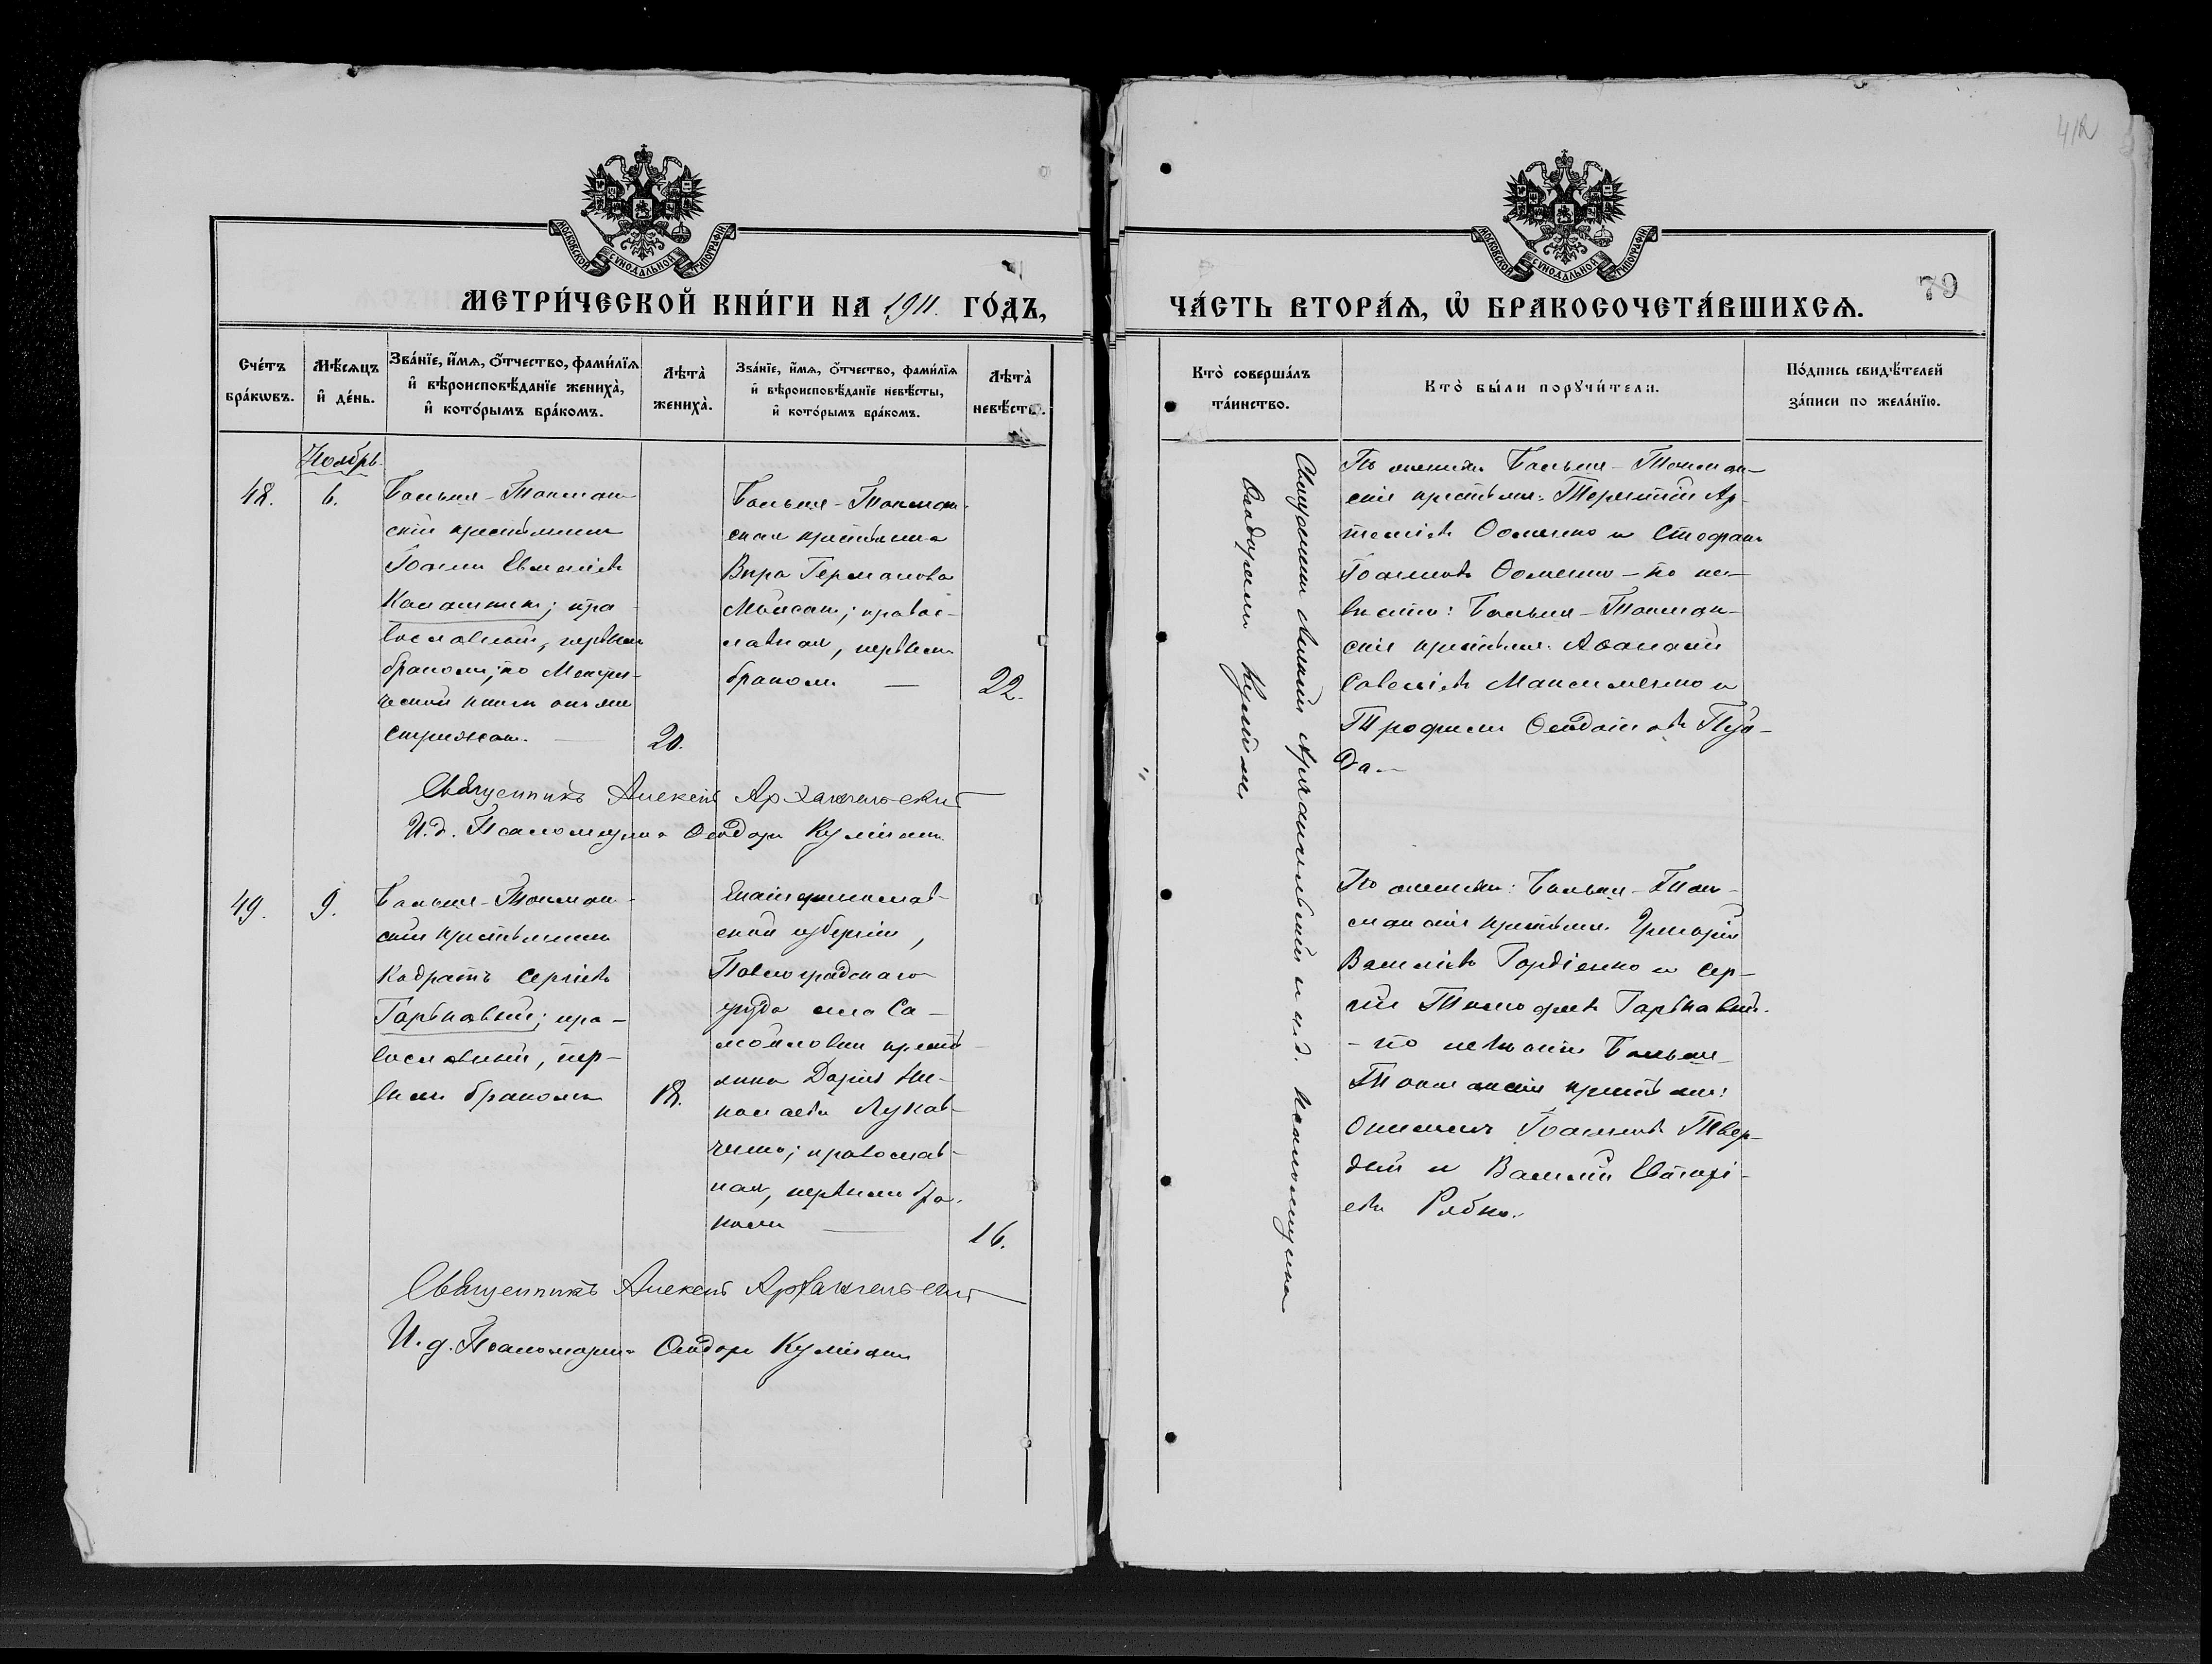 41
МОСКОВСКОЙ СѴНОДАЛЬНОЙ ТИПОГРАФІИ
МОСКОВСКОЙ СѴНОДАЛЬНОЙ ТИПОГРАФІИ
МЕТРИ́ЧЕСКОЙ КНИ́ГИ НА 1911. ГО́ДЪ,
Сче́тъ бра́кѡвъ.
Мѣ́сяцъ и҆ де́нь.
Зва́нїе, и҆́мѧ, ѻ҆́тчество, фами́лїѧ
и҆ вѣроисповѣ́данїе жениха̀,
и҆ кото́рымъ бра́комъ.
Лѣта̀ жениха̀.
Зва́нїе, и҆́мѧ, ѻ҆́тчество, фами́лїѧ
и҆ вѣроисповѣ́данїе невѣ́сты,
и҆ кото́рымъ бра́комъ.
Лѣта̀ невѣ́сты.
Ноябрь.
48.
6.
Больше-Токмак-
скій крестьянинъ
Іоаннъ
пра-
вославный, первымъ
бракомъ; по Метри-
ческой книгѣ
20.
Больше-Токмак-
ская крестьянка
Вѣра Германова
правос-
лавная, первымъ
бракомъ —
22.
Священникъ Алексѣй Архангельскій
И.д. Псаломщика Ѳеодоръ
49.
9.
Больше-Токмак-
скій крестьянинъ
Кодратъ Сергіевъ
Гарьковый; пра-
вославный, пер-
вымъ бракомъ
18.
Екатеринослав-
ской губерніи,
Павлоградскаго
уѣзда села Са-
мойловки кресть-
янка Дарія Ни-
колаева Луков-
ченко; православ-
ная, первымъ бра-
комъ —
16.
Священникъ Алексѣй Архангельскій
И.д. Псаломщика Ѳеодоръ
ЧА́СТЬ ВТОРА́Ѧ, Ѽ БРАКОСОЧЕТА́ВШИХСѦ.
79
Кто̀ соверша́лъ та́инство.
Кто̀ бы́ли порꙋчи́тели.
По́дпись свидѣ́телей за́писи по жела́нїю.
Священникъ Алексѣй Архангельскій и и.д. Псаломщика
Ѳеодоромъ
По женихѣ Больше-Токмак-
скіе крестьяне: Терентій Ар-
Ѳоменко и Стефанъ
Іоанновъ Ѳоменко – по не-
вѣстѣ: Больше-Токмак-
скіе крестьяне: Аѳанасій
Савельевъ Максименко и
Трофимъ
да.—
По женихѣ: Больше-Ток-
макскіе крестьяне: Григорій
Васильевъ Гордіенко и Сер-
гій Тимофеевъ Гарьковый.
– по невѣстѣ Больше-
Токмакскіе крестьяне:
Іоанновъ Твер-
дый и Василій Евстафі-
евъ Рябко.